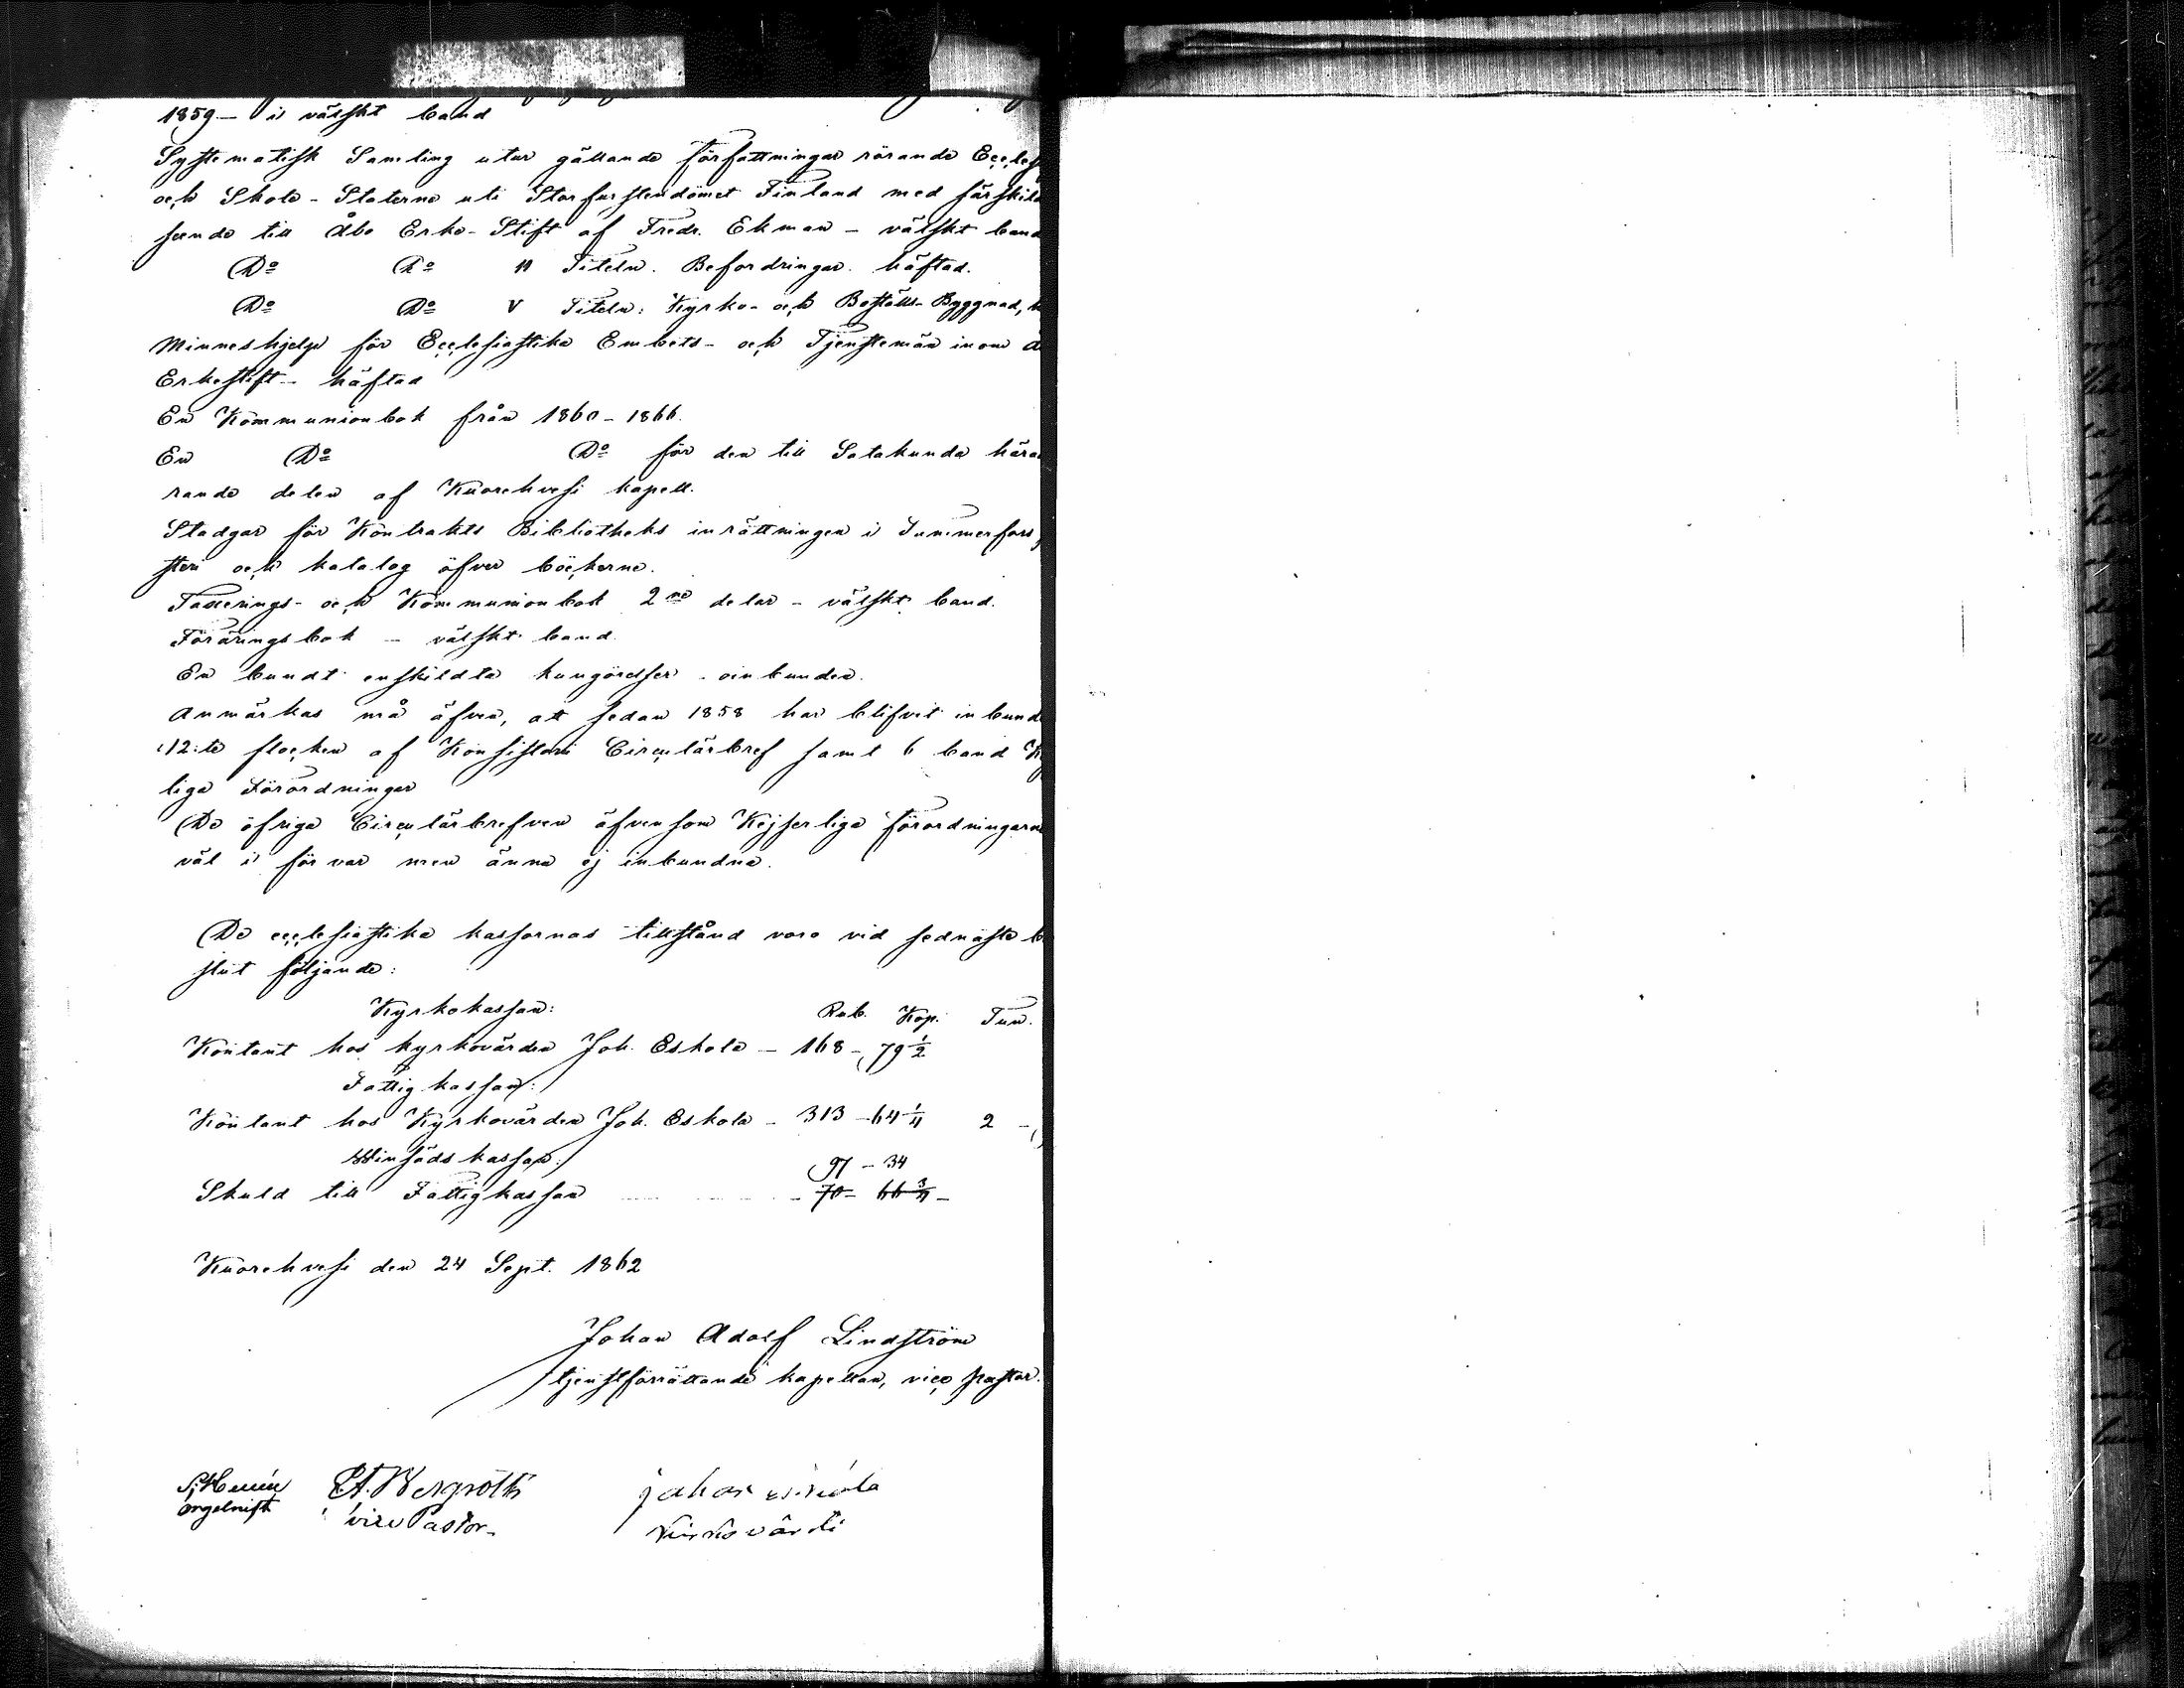 1859 – i välskt band
Systematisk Samling utur gällande författningar rörande Eccles
och Skole-Staterne uti Storfurstendömet Finland med särskil
seende till Åbo Erke-Stift af Fredr. Ekman – välskt band
Do Do II Titeln. Befordringar. häftad.
Do Do V Titeln: Kyrko- och Boställs-Byggnad, h
Minneshjelp för Ecclesiastika Embets- och Tjenstemän inom Å
Erkestift – häftad
En Kommunionbok från 1860 – 1866.
En Do Do för den till Satakunda härad
rande delen af Kuorehvesi kapell.
Stadgar för Kontrakts Bibliotheks inrättningen i Tammerfors
steri och katalog öfver böckerne.
Taxerings- och Kommunionbok 2ne delar – välskt band.
Föräringsbok – välskt band
En bundt enskildta kungörelser – oinbunden.
Anmärkas må äfven, att sedan 1858 har blifvit inbund
12:te flocken af Konsistorii Circulärbref samt 6 band K
liga Förordningar
De öfriga Circulärbrefven äfvensom Kejserliga förordningarne
väl i förvar men ännu ej inbundna.
De ecclesiastika kassornas tillstånd voro vid sednaste b
slut följande:
Kyrkokassan: Rub. Kop. Tun.
Kontant hos kyrkovärden Joh. Eskola – 168 – 79 1/2
Fattigkassan:
Kontant hos Kyrkovärden Joh. Eskola – 313 – 64 1/4 2 –
kassan: 97 – 34
Skuld till Fattigkassan – 70 – 66 3/4 –
Kuorehvesi den 24 Sept. 1862
Johan Adolf Lindström
tjenstförrättande kapellan, vice pastor.
Bergroth johan eskola
orgelnist vice Pastor. kirkovärti